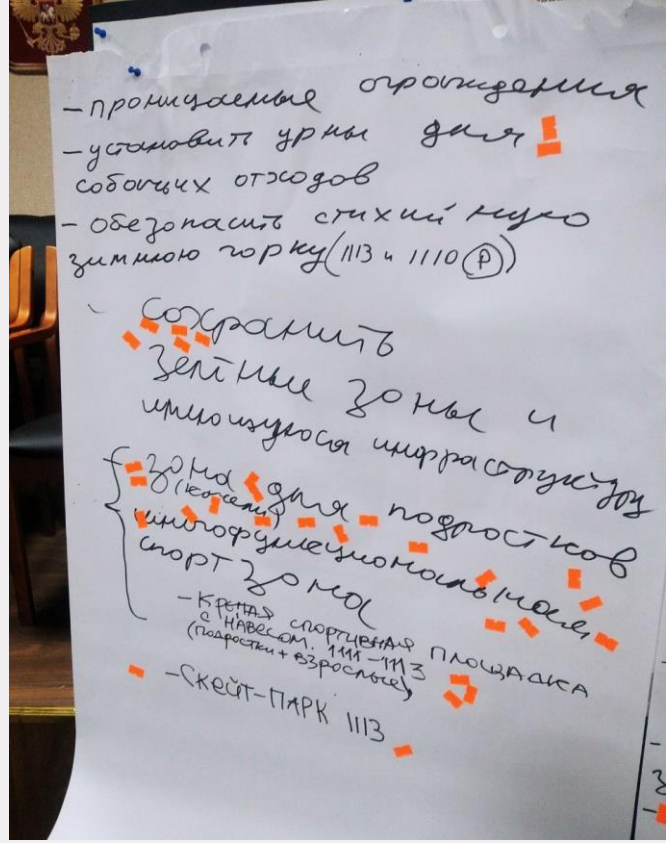 - проницаемые ограждения
- установить урны для
собачьих отходов
- обезопасить стихийную
зимнюю горку (1113 и 1110 (Р))
сохранить
зелёные зоны и
имеющуюся инфраструктуру
- зона для подростков
(качели)
многофункциональная
спорт зона
- Крытая спортивная площадка
с навесом. 1111-1113
(подростки + взрослые),
- Скейт-парк 1113